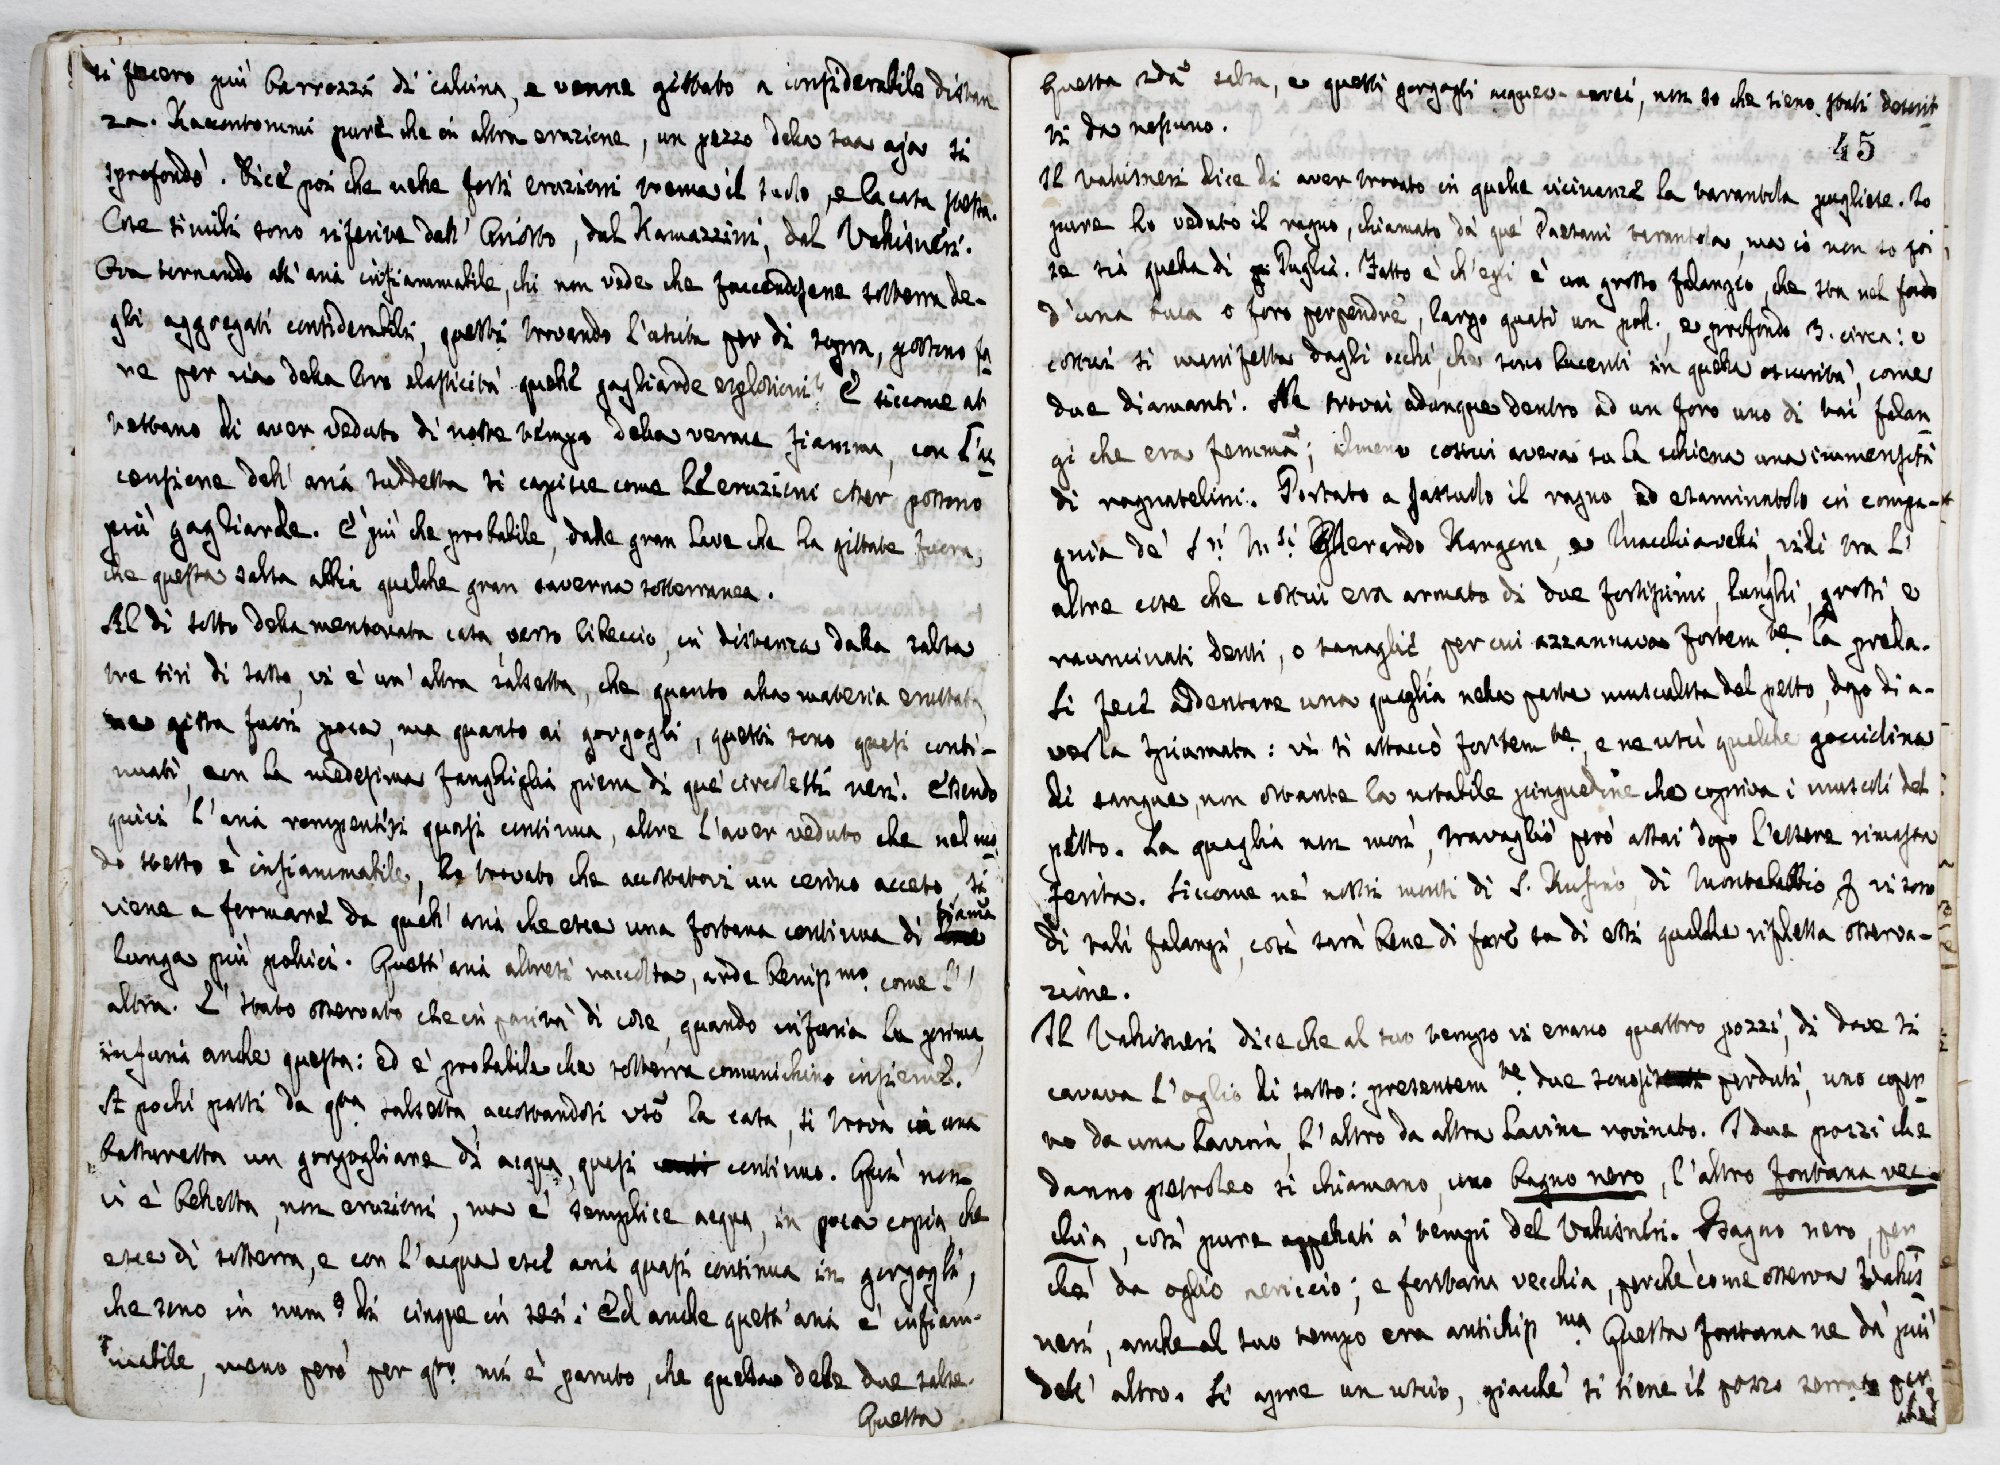 si fecero più barrozzi di calcina, e venne gittato a considerabile distan
za. Raccontommi pure che in altra eruzione, un pezzo della sua aja si
sprofondò. Dice poi che nelle forti eruzioni trema il suolo, e la casa stessa.
Cose simili sono riferite dall' Ariosto, dal Ramazzini, dal Vallisneri.
Ora tornando all' aria infiammabile, chi non vede che facendosene sotterra de-
gli aggregati considerabili, questi trovando l'uscita per di sopra, possono fa
re per via della loro elasticità quelle gagliarde esplosioni? E siccome at
testano di aver veduto di notte tempo della verna fiamma, con l'ac
censione dell' aria suddetta si capisce come le eruzioni esser possono
più gagliarde. È più che probabile, dalle gran lave che ha gittate fuora,
che questa salsa abbia qualche gran caverna sotterranea.
Al di sotto della mentovata casa, verso libeccio, in distanza dalla salsa
tre tiri di sasso, vi è un' altra salsetta, che quanto alla materia eruttata,
ne gitta fuori poca, ma quanto ai gorgogli, questi sono quasi conti-
nuati, con la medesima fanghiglia piena di que' circoletti neri. Essendo
quivi l' aria rompentisi quasi continua, oltre l'aver veduto che nel mo
do stesso è infiammabile, ho trovato che accostatovi un cerino acceso, si
viene a formare da quell' aria che esce una fontana continua di fiama
lunga più pollici. Quest' aria altresì raccolta, arde benissmo come l'
altra. È stato osservato che in parità di cose, quando infuria la prima,
infuria anche questa: ed è probabile che sotterra comunichino insieme.
A pochi passi da qta salsetta, accostandosi vso la casa, si trova in una
bassuretta un gorgogliare di acqua, quasi continuo. Quivi non
vi è belletta, non eruzioni, ma è semplice acqua, in poca copia, che
esce di sotterra, e con l'acqua esce aria quasi continua in gorgogli,
che sono in num.o di cinque in sei: Ed anche quest' aria è infiam-
mabile, meno però per qto mi è paruto, che quella delle due salse.
Questa
Questa 2da salsa, e questi gorgogli acqueo-aerei, non so che sieno stati descrit
ti da nessuno.
45
Il Vallisneri dice di aver trovato in quelle vicinanze la tarantola pugliese. Io
pure ho veduto il ragno, chiamato da que' Paesani tarantola, ma io non so poi
se sia quella di Puglia. Fatto è ch'egli è un grosso falangio, che sta nel fondo
d'una buca o foro perpendre, largo quasi un poll., e profondo 3. circa: e
costui si manifesta dagli occhi, che sono lucenti in quella oscurità, come
due diamanti. Ne trovai adunque dentro ad un foro uno di tai falan
gi che era femina; almeno costui aveva su la schiena una immensità
di ragnatelini. Portato a Sassuolo il ragno, ed esaminatolo in compa-
gnia de' Sri Msi Gherardo Rangone, e Macchiavelli, vidi tra l'
altre cose che costui era armato di due fortissimi, lunghi, grossi e
rauncinati denti, o tanaglie per cui azzannava fortemte la preda.
Si fece addentare una quaglia nella parte muscolosa del petto, dopo di a-
verla spiumata: vi si attaccò fortemte, e ne uscì qualche gocciolina
di sangue, non ostante la notabile pinguedine che copriva i muscoli del
petto. La quaglia non morì, travagliò però assai dopo l'essere rimasta
ferita. Siccome ne' nostri monti di S. Rufino, di Montebabbio & vi sono
di tali falangi, così sarà bene di fare su di essi qualche riflessa osserva-
zione.
Il Vallisneri dice che al suo tempo vi erano quattro pozzi, di dove si
cavava l'oglio di sasso: presentemte due sonosi perduti, uno coper
to da una lavina, l'altro da altra lavina rovinato. I due pozzi che
danno petroleo si chiamano, uno bagno nero, l'altro fontana vec-
chia, così pure appellati a' tempi del Vallisnri. Bagno nero, per
chè da oglio nericcio; e fontana vecchia, perchè come osserva Vallis
neri, anche al suo tempo era antichissma Questa fontana ne dà più
dell' altro. Si apre un uscio, giacchè si tiene il pozzo serrato per
chè